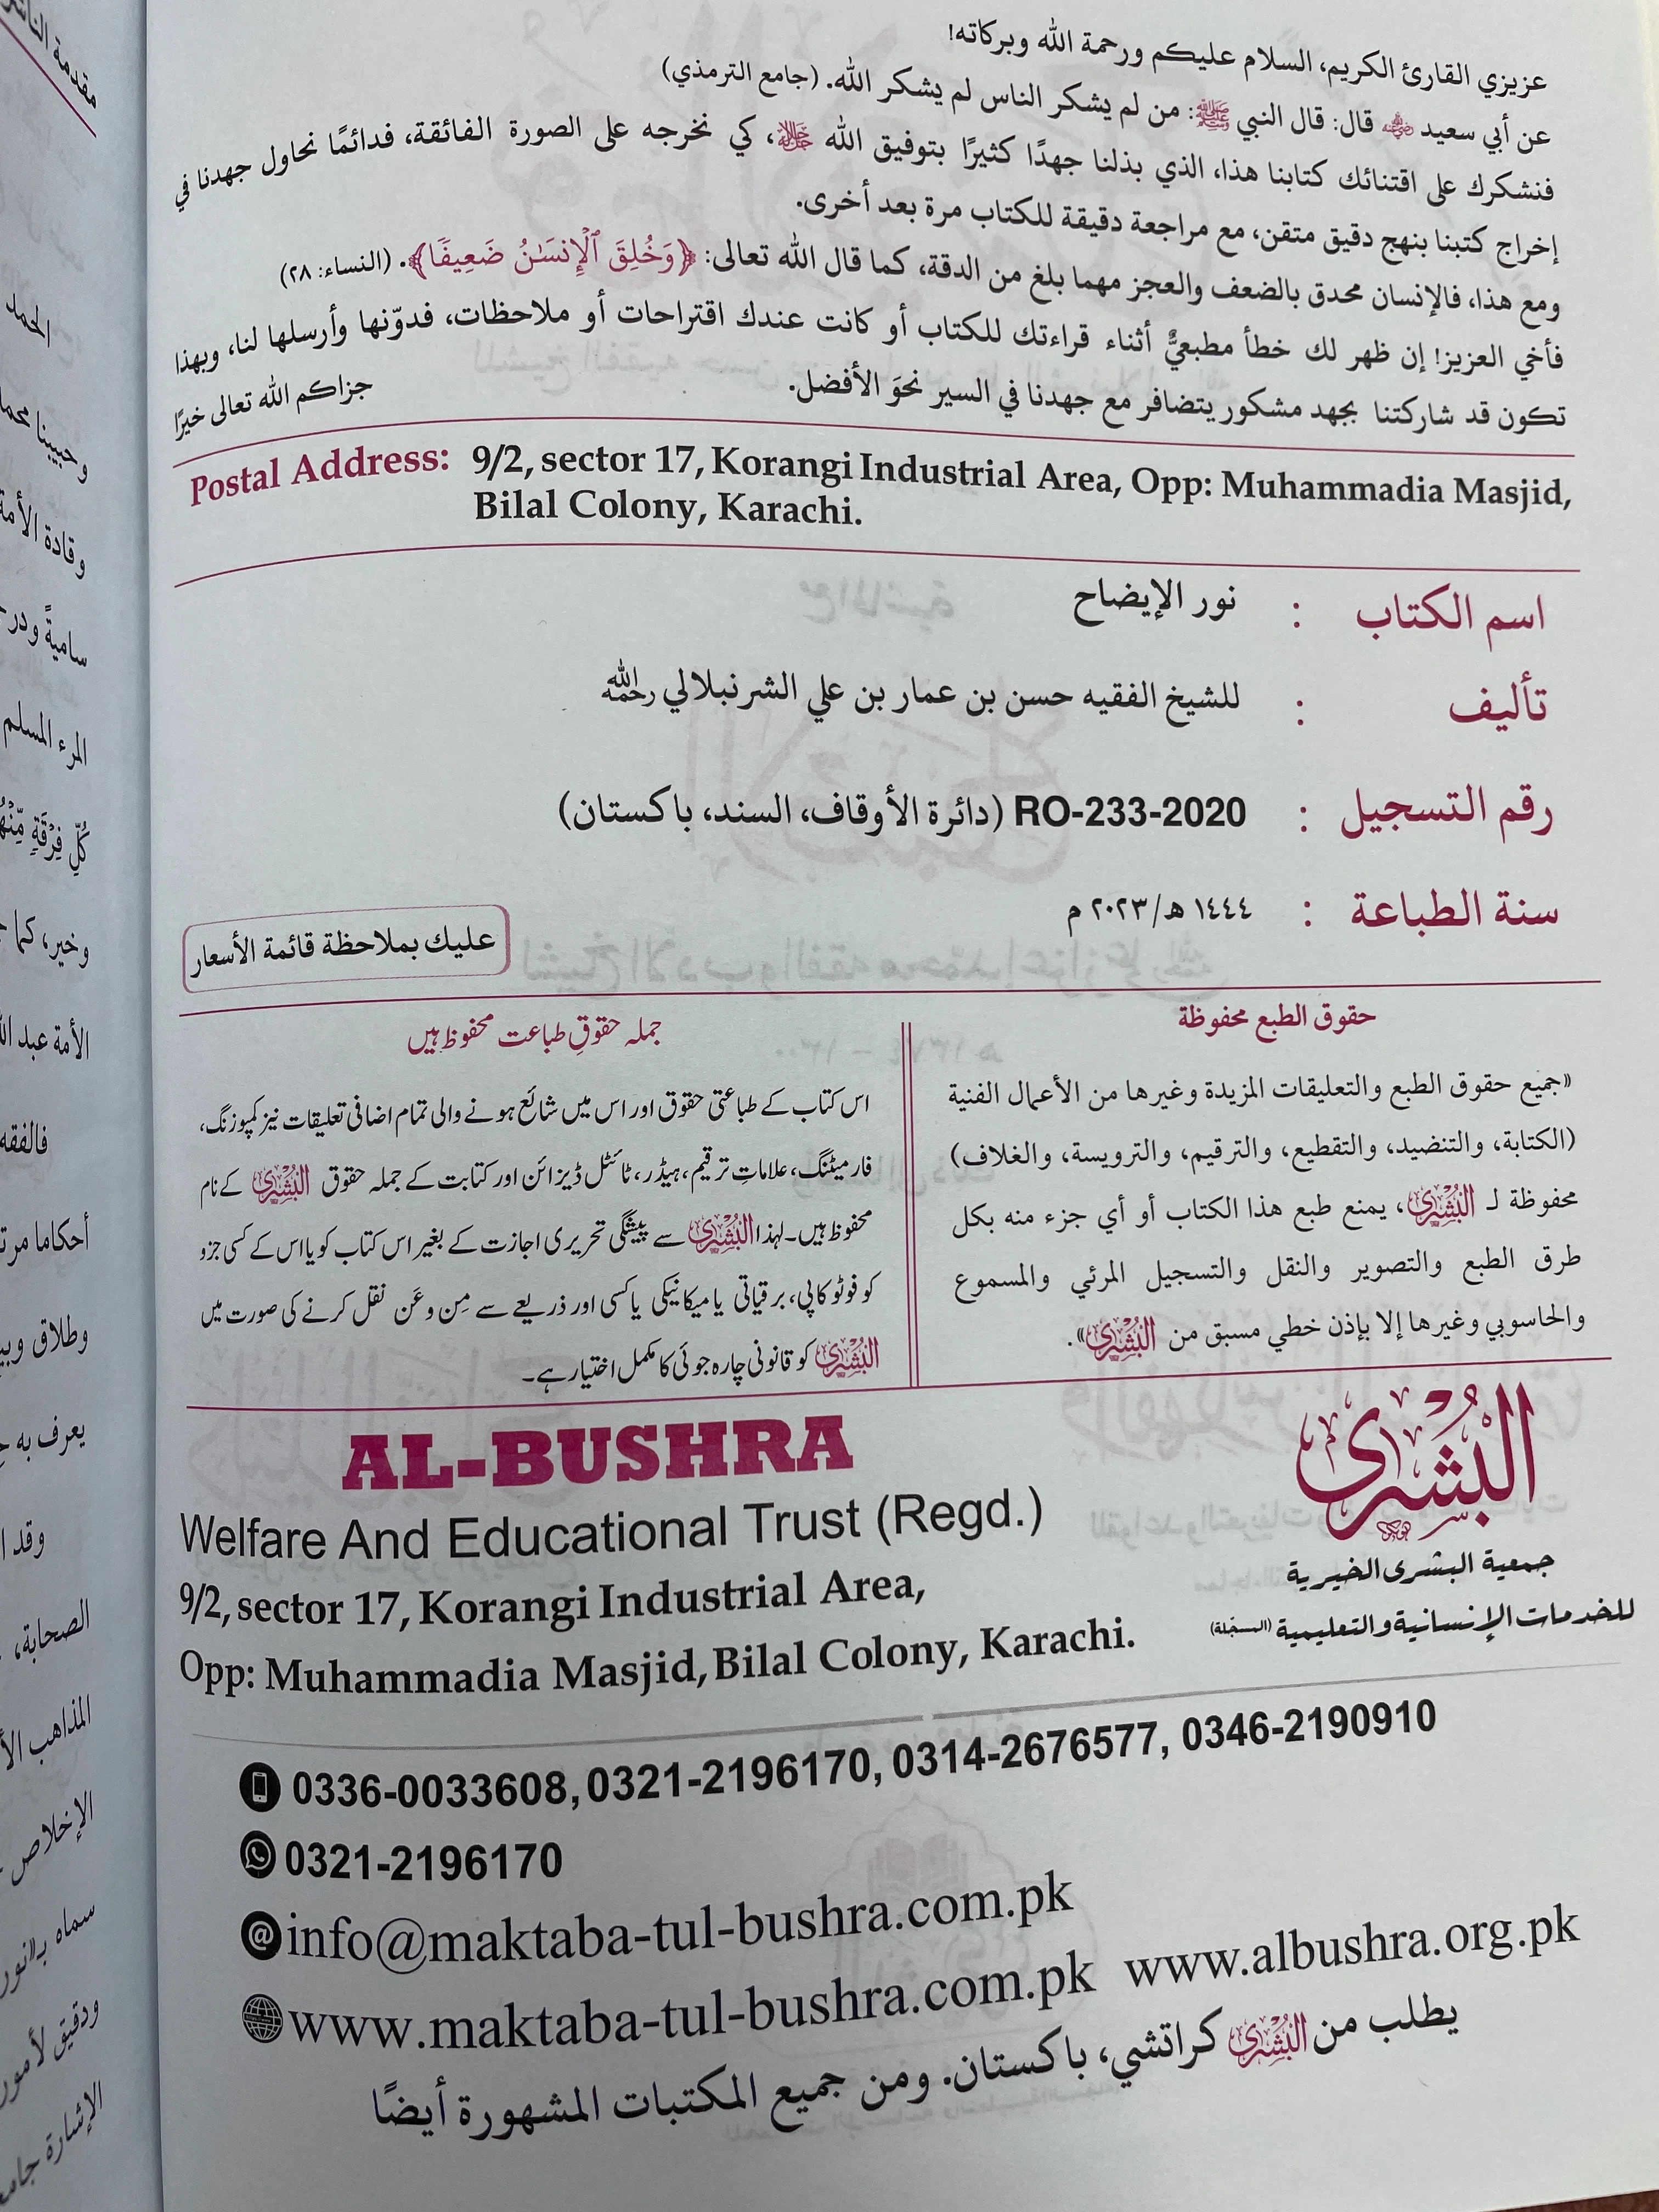 عزيزي القارئ الكريم، السلام عليكم ورحمة الله وبركاته!
عن أبي سعيد رضي الله عنه قال: قال النبي ﷺ: من لم يشكر الناس لم يشكر الله. (جامع الترمذي)
فنشكرك على اقتنائك كتابنا هذا، الذي بذلنا جهدًا كثيرًا بتوفيق الله ﷻ، كي نخرجه على الصورة الفائقة، فدائمًا نحاول جهدنا في
إخراج كتبنا بنهج دقيق متقن، مع مراجعة دقيقة للكتاب مرة بعد أخرى.
ومع هذا، فالإنسان محدق بالضعف والعجز مهما بلغ من الدقة، كما قال الله تعالى: ﴿وَخُلِقَ ٱلْإِنسَٰنُ ضَعِيفًا﴾. (النساء: ٢٨)
فأخي العزيز! إن ظهر لك خطأ مطبعيٌّ أثناء قراءتك للكتاب أو كانت عندك اقتراحات أو ملاحظات، فدوّنها وأرسلها لنا، وبهذا
تكون قد شاركتنا بجهد مشكور يتضافر مع جهدنا في السير نحوَ الأفضل. جزاكم الله تعالى خيرًا
Postal Address: 9/2, sector 17, Korangi Industrial Area, Opp: Muhammadia Masjid,
Bilal Colony, Karachi.
اسم الكتاب : نور الإيضاح
تأليف : للشيخ الفقيه حسن بن عمار بن علي الشرنبلالي رحمه الله
رقم التسجيل : RO-233-2020 (دائرة الأوقاف، السند، باكستان)
سنة الطباعة : ١٤٤٤ هـ/٢٠٢٣ م
عليك بملاحظة قائمة الأسعار
حقوق الطبع محفوظة
«جميع حقوق الطبع والتعليقات المزيدة وغيرها من الأعمال الفنية
(الكتابة، والتنضيد، والتقطيع، والترقيم، والترويسة، والغلاف)
محفوظة لـ البُشرى، يمنع طبع هذا الكتاب أو أي جزء منه بكل
طرق الطبع والتصوير والنقل والتسجيل المرئي والمسموع
والحاسوبي وغيرها إلا بإذن خطي مسبق من البُشرى».
جملہ حقوقِ طباعت محفوظ ہیں
اس کتاب کے طباعتی حقوق اور اس میں شائع ہونے والی تمام اضافی تعلیقات نیز کمپوزنگ،
فارمیٹنگ، علاماتِ ترقیم، ہیڈر، ٹائٹل ڈیزائن اور کتابت کے جملہ حقوق البُشرى کے نام
محفوظ ہیں۔ لہذا البُشرى سے پیشگی تحریری اجازت کے بغیر اس کتاب کو یا اس کے کسی جزو
کو فوٹو کاپی، برقیاتی یا میکانیکی یا کسی اور ذریعے سے مِن و عَن نقل کرنے کی صورت میں
البُشرى کو قانونی چارہ جوئی کا مکمل اختیار ہے۔
AL-BUSHRA
Welfare And Educational Trust (Regd.)
9/2, sector 17, Korangi Industrial Area,
Opp: Muhammadia Masjid, Bilal Colony, Karachi.
البُشرى
جمعية البشرى الخيرية
للخدمات الإنسانية والتعليمية (المسجّلة)
0336-0033608, 0321-2196170, 0314-2676577, 0346-2190910
0321-2196170
info@maktaba-tul-bushra.com.pk
www.maktaba-tul-bushra.com.pk www.albushra.org.pk
يطلب من البُشرى كراتشي، باكستان. ومن جميع المكتبات المشهورة أيضًا
مقدمة الناشر
الحمد
وقادة الأمة
المرء المسلم
كُلِّ فِرْقَةٍ مِّنْهُ
وخير، كما
الأمة عبد
فالفقه
وطلاق
يعرف به
الصحابة،
المذاهب
الإخلاص
ودقيق لأمور
الإشارة